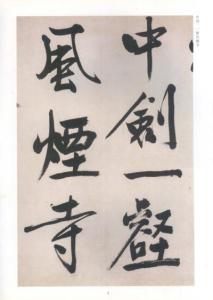 中劍一壑
風煙寺